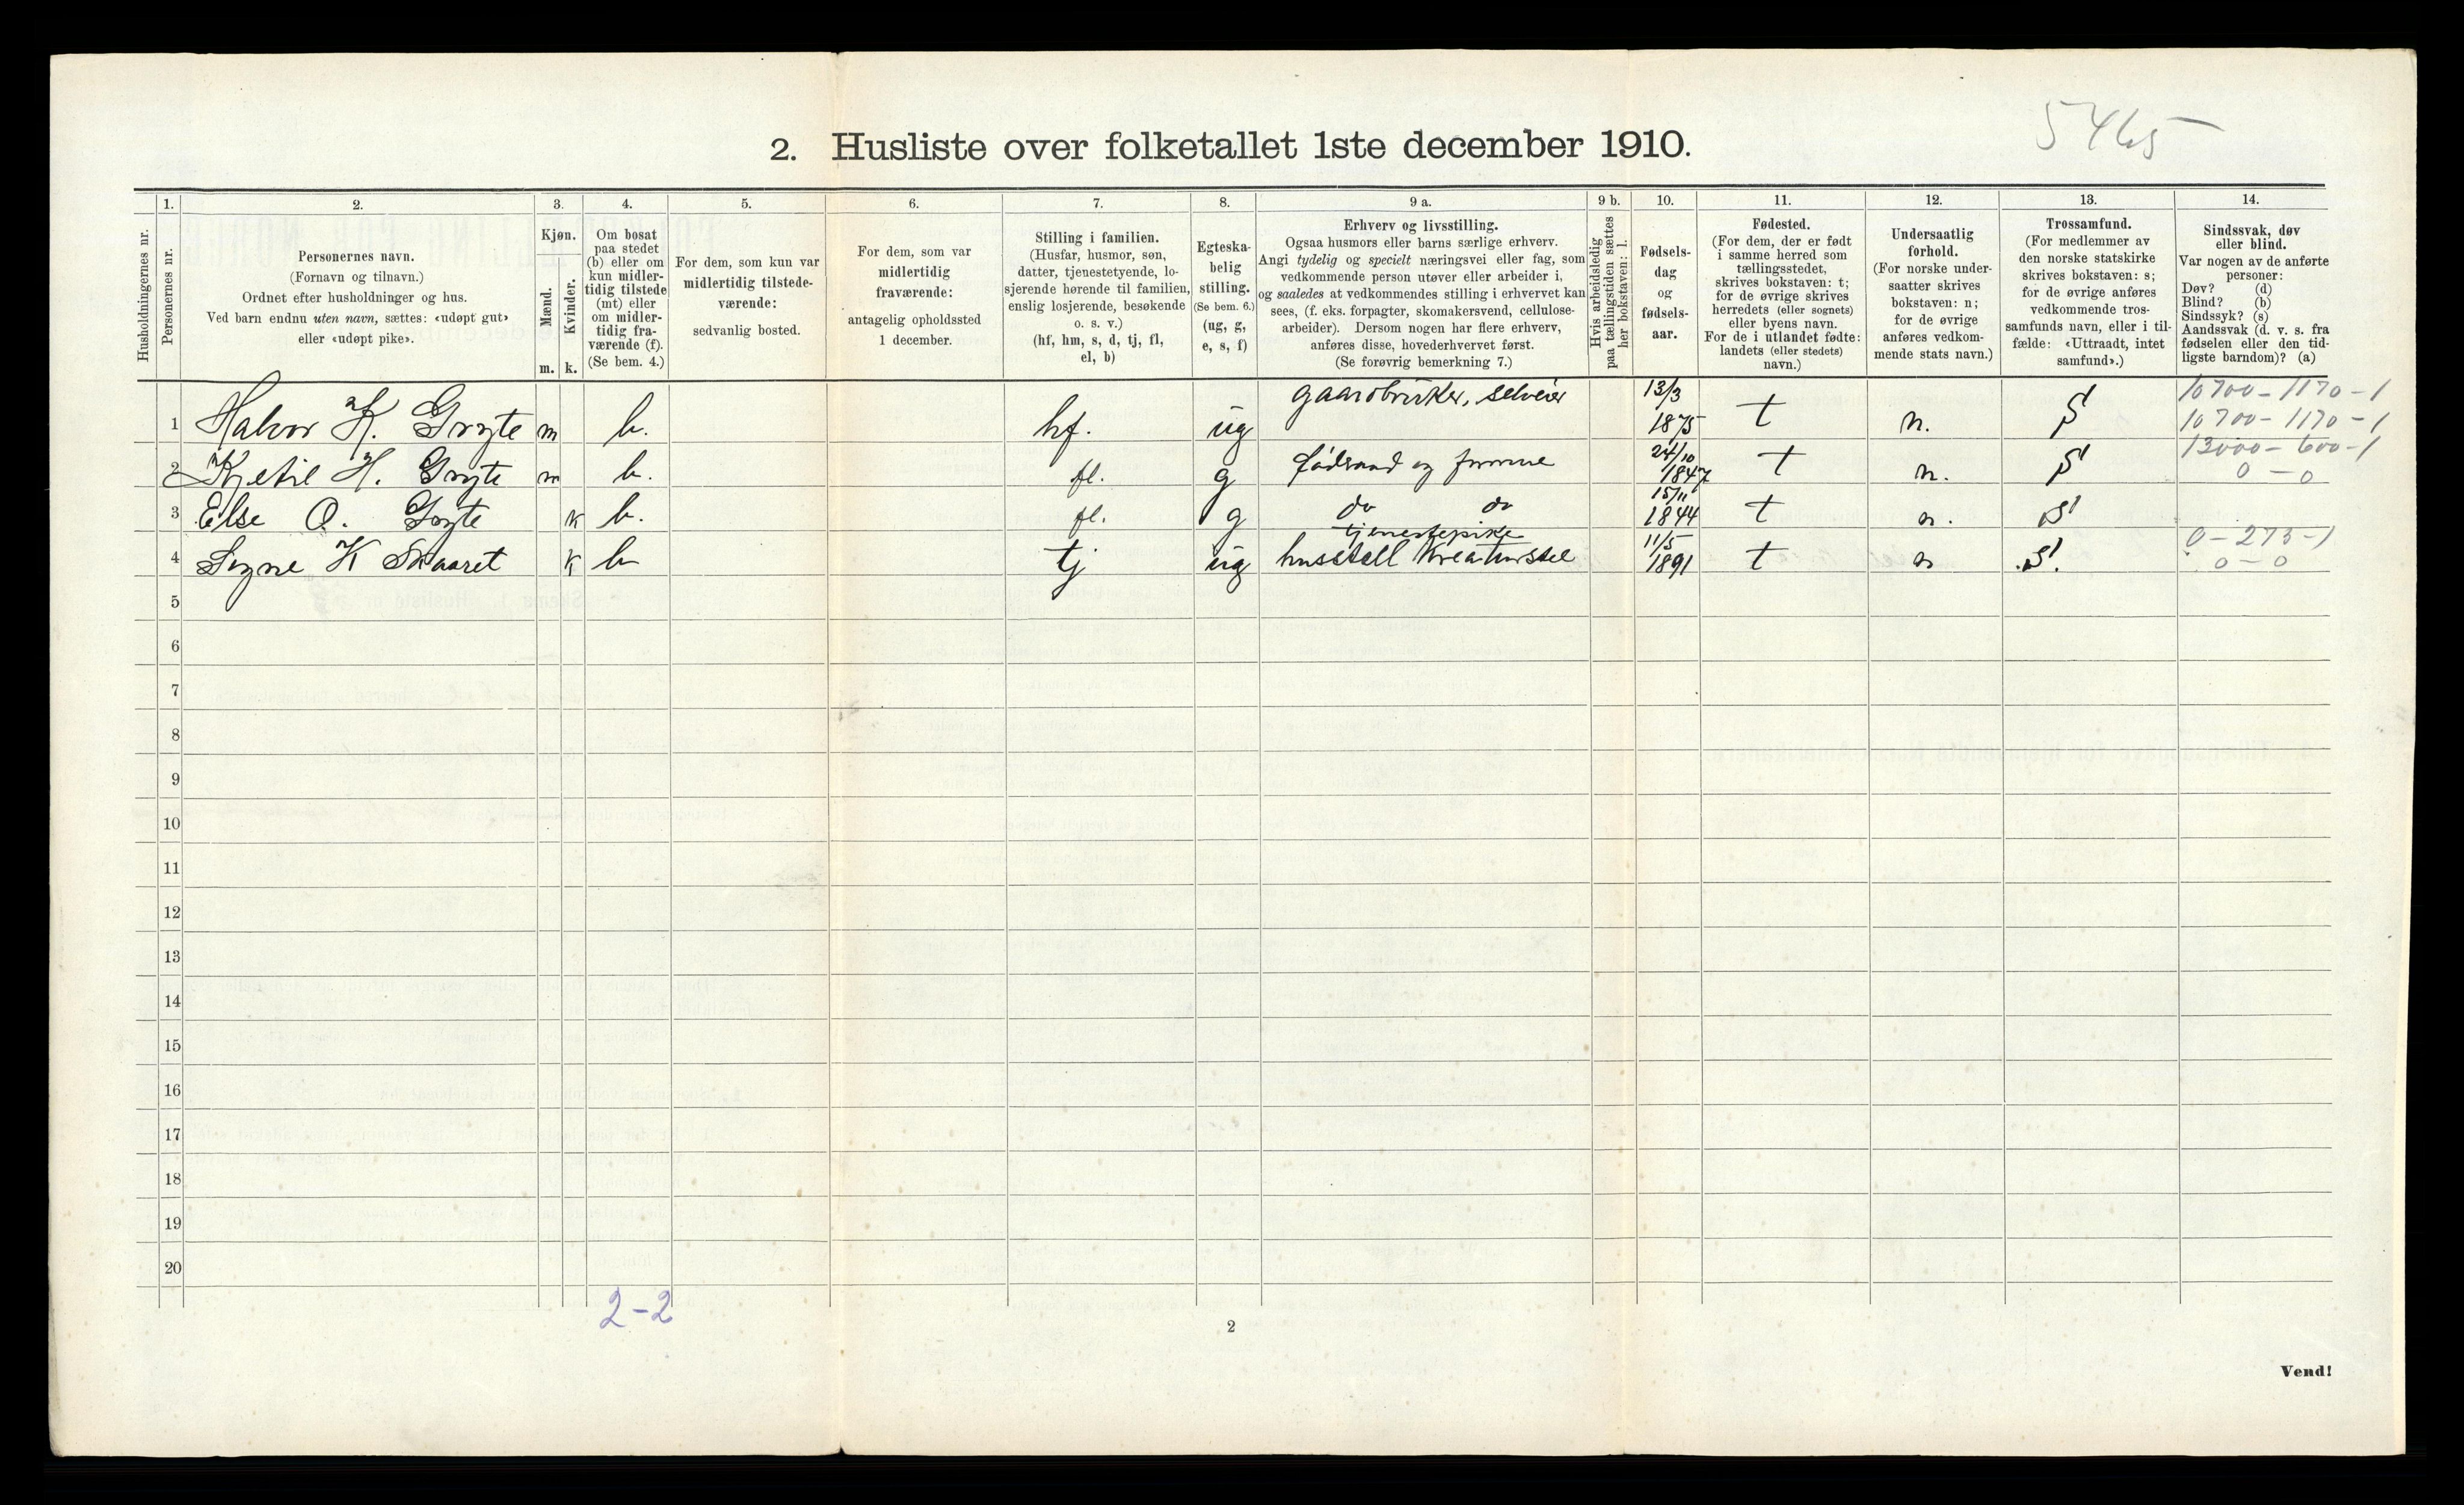 5465
2. Husliste over folketallet 1ste december 1910.
Husholdningernes nr.
1.
Personernes nr.
2.
Personernes navn.
(Fornavn og tilnavn.)
Ordnet efter husholdninger og hus.
Ved barn endnu uten navn, sættes: «udøpt gut»
eller «udøpt pike».
3.
Kjøn.
Mænd.
Kvinder.
m. k.
4.
Om bosat
paa stedet
(b) eller om
kun midler-
tidig tilstede
(mt) eller
om midler-
tidig fra-
værende (f).
(Se bem. 4.)
5.
For dem, som kun var
midlertidig tilstede-
værende:
sedvanlig bosted.
6.
For dem, som var
midlertidig
fraværende:
antagelig opholdssted
1 december.
7.
Stilling i familien.
(Husfar, husmor, søn,
datter, tjenestetyende, lo-
sjerende hørende til familien,
enslig losjerende, besøkende
o. s. v.)
(hf, hm, s, d, tj, fl,
el, b)
8.
Egteska-
belig
stilling.
(Se bem. 6.)
(ug, g,
e, s, f)
9 a.
Erhverv og livsstilling.
Ogsaa husmors eller barns særlige erhverv.
Angi tydelig og specielt næringsvei eller fag, som
vedkommende person utøver eller arbeider i,
og saaledes at vedkommendes stilling i erhvervet kan
sees, (f. eks. forpagter, skomakersvend, cellulose-
arbeider). Dersom nogen har flere erhverv,
anføres disse, hovederhvervet først.
(Se forøvrig bemerkning 7.)
9 b.
Hvis arbeidsledig
paa tællingstiden sættes
her bokstaven: l.
10.
Fødsels-
dag
og
fødsels-
aar.
11.
Fødested.
(For dem, der er født
i samme herred som
tællingsstedet,
skrives bokstaven: t;
for de øvrige skrives
herredets (eller sognets)
eller byens navn.
For de i utlandet fødte:
landets (eller stedets)
navn.)
12.
Undersaatlig
forhold.
(For norske under-
saatter skrives
bokstaven: n;
for de øvrige
anføres vedkom-
mende stats navn.)
13.
Trossamfund.
(For medlemmer av
den norske statskirke
skrives bokstaven: s;
for de øvrige anføres
vedkommende tros-
samfunds navn, eller i til-
fælde: «Uttraadt, intet
samfund».)
14.
Sindssvak, døv
eller blind.
Var nogen av de anførte
personer:
Døv? (d)
Blind? (b)
Sindssyk? (s)
Aandssvak (d. v. s. fra
fødselen eller den tid-
ligste barndom)? (a)
1 Halvor K. Gryte m b. hf. ug gaardbruker, selveier 13/3 1875 t n. S 10700-1170-1
10700-1170-1
2 Kjetil H. Gryte m b. fl. g føderaad og 24/10 1847 t n. S 13000-600-1
0-0
3 Else O. Gryte k b. fl. g do do 15/11 1844 t n. S
4 Signe K Skaaret k b tj ug tjenestepike
husstell kreaturstel 11/5 1891 t n S. 0-273-1
0-0
5
6
7
8
9
10
11
12
13
14
15
16
17
18
19
20
2-2
2
Vend!